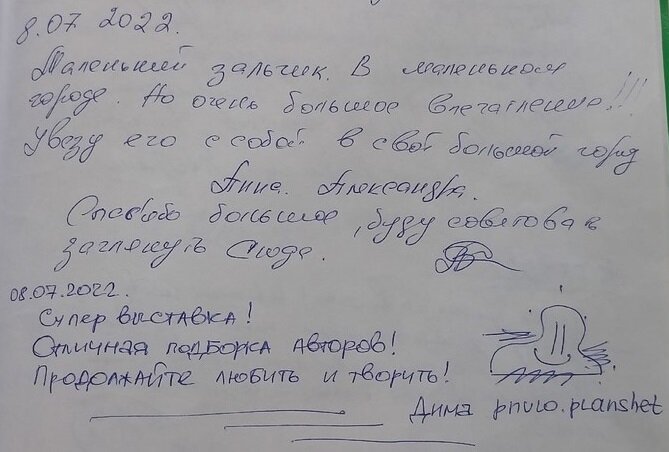 8.07 2022.
Маленький зальчик. В маленьком
городе. Но очень большое впечатление!!!
Увезу его с собой в свой большой город
Анна. Александра.
Спасибо большое, буду советова
заглянуть сюда.
08.07.2022.
Супер выставка!
Отличная подборка авторов!
Продолжайте любить и творить!
Дима pnvlo.planshet